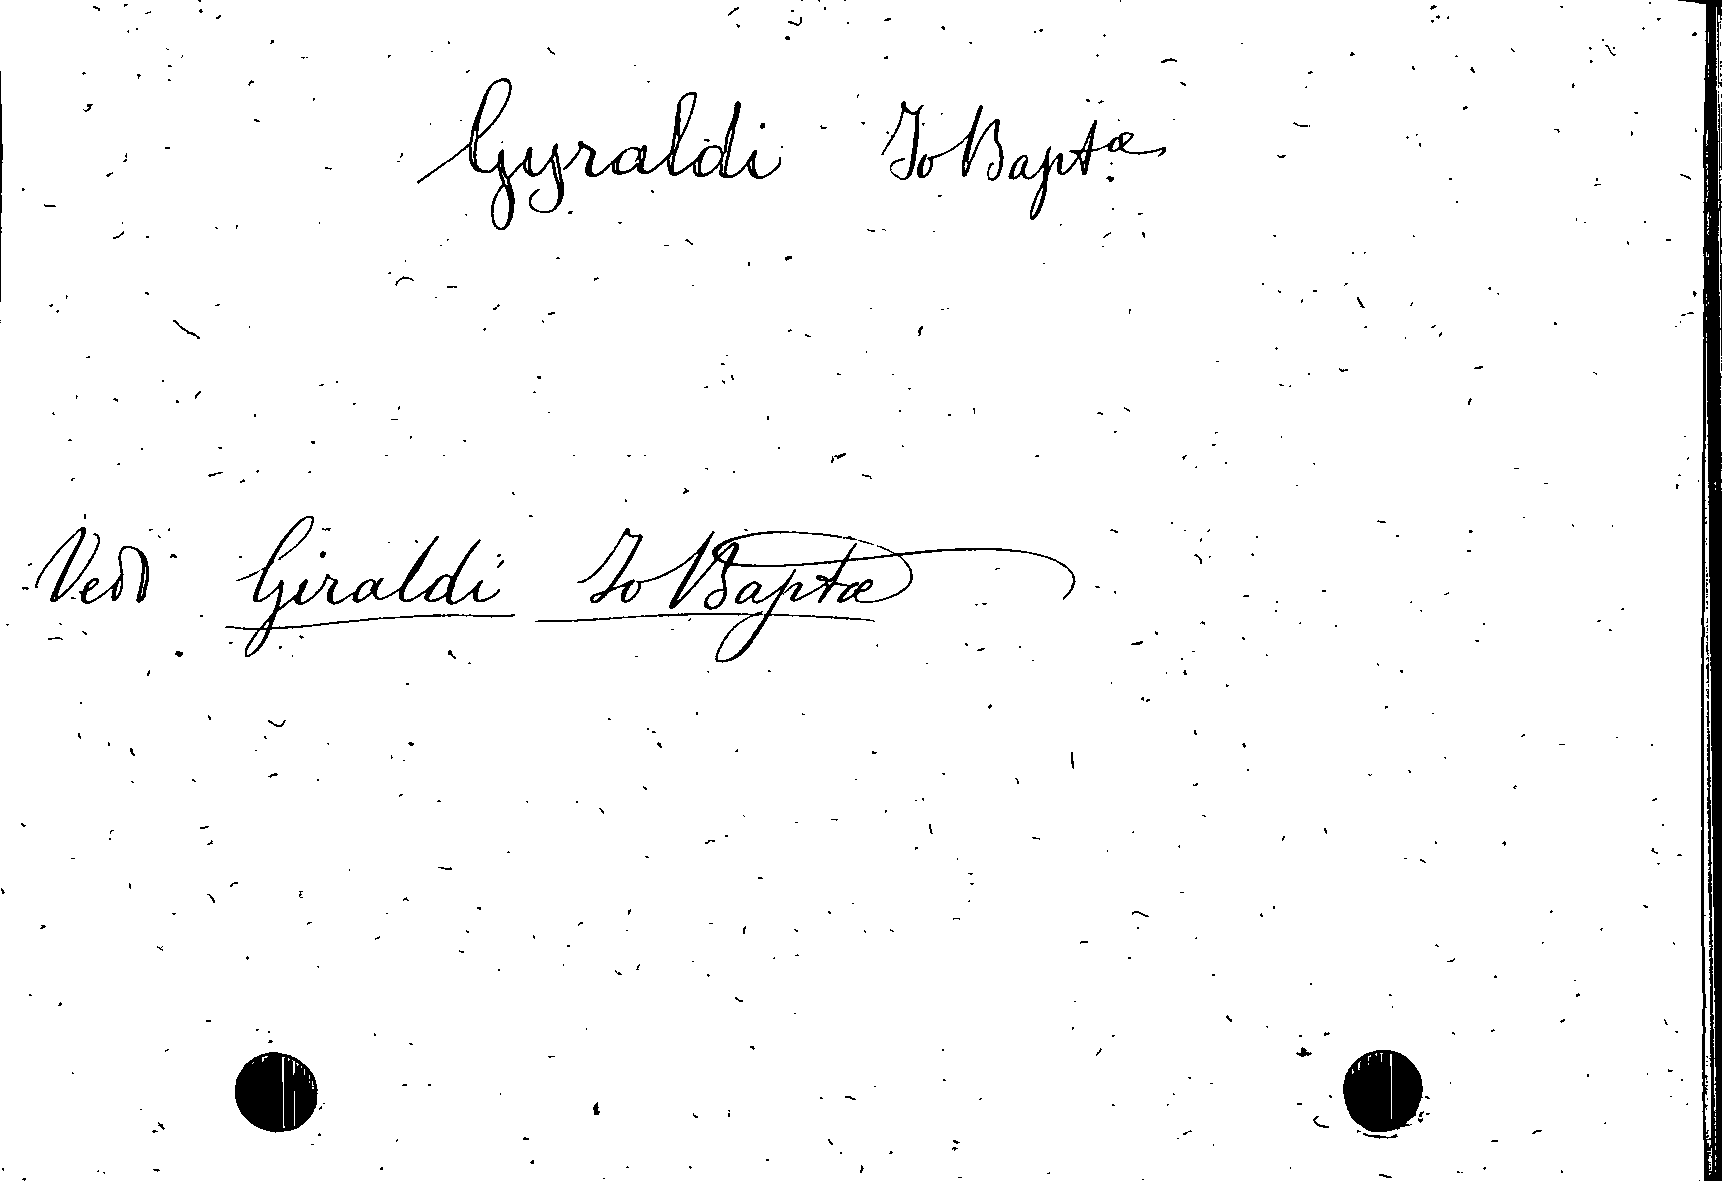 Gyraldi Jo Bapt.æ
Vedi Giraldi Jo Baptæ